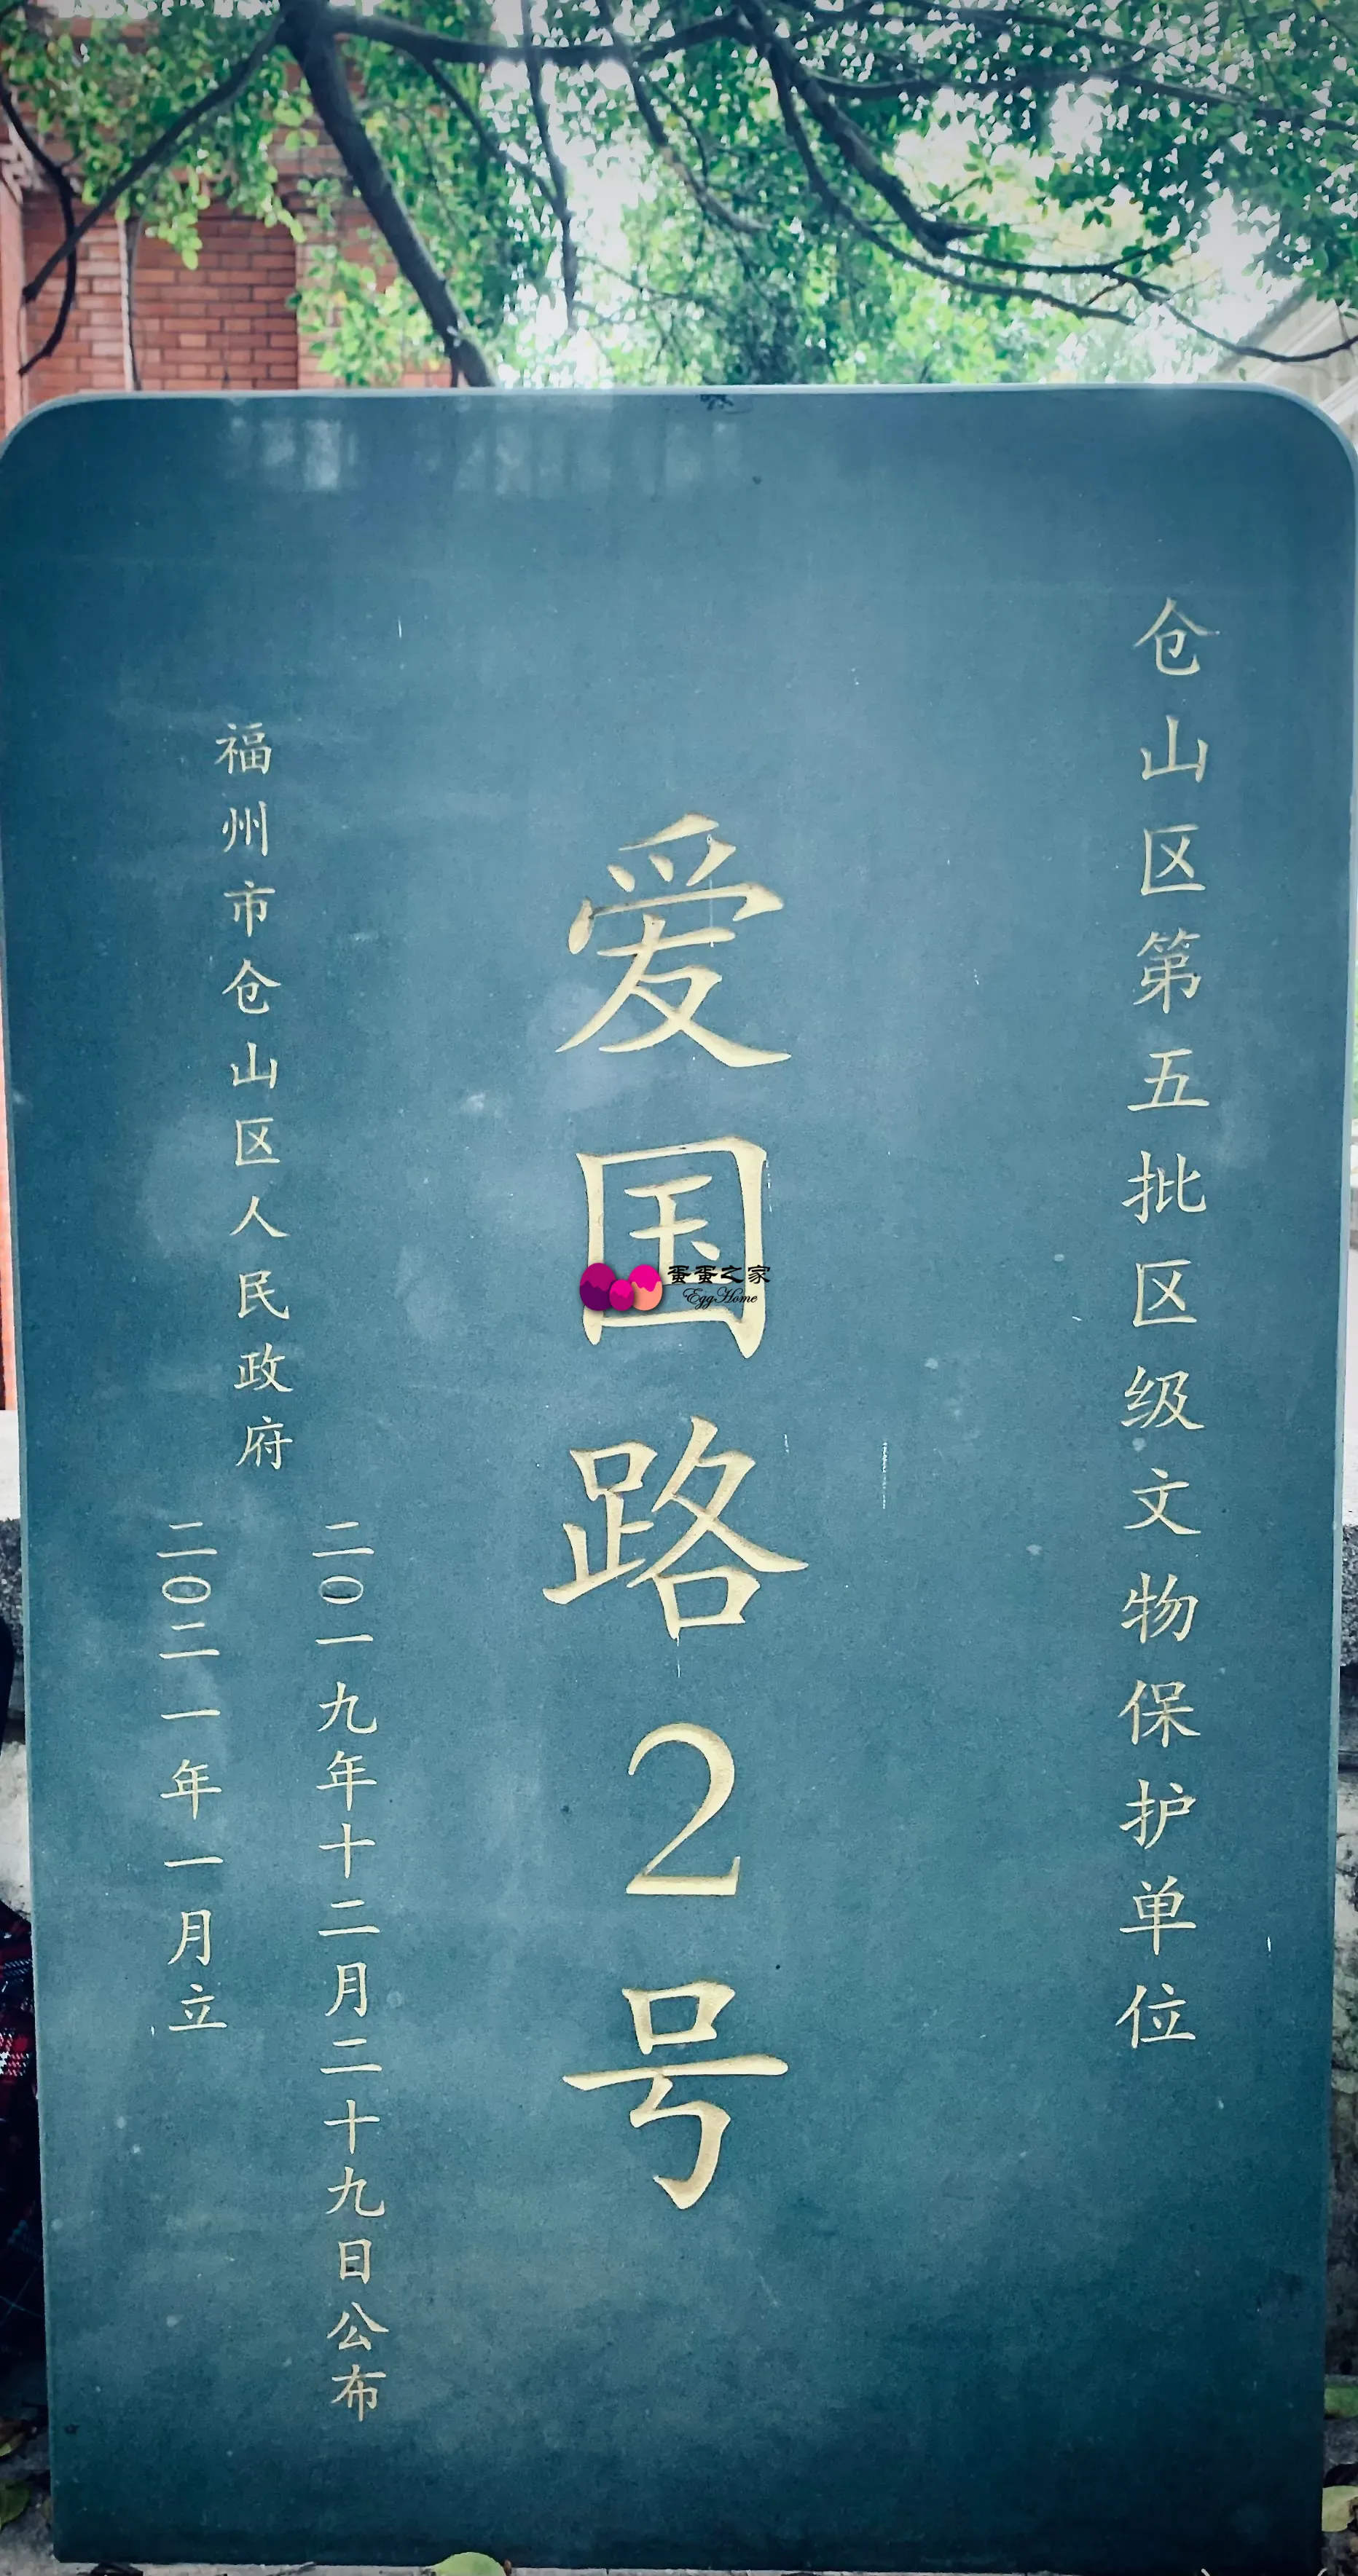 仓山区第五批区级文物保护单位
爱国路2号
福州市仓山区人民政府
二〇一九年十二月二十九日公布
二〇二一年一月立
蛋蛋之家
EggHome